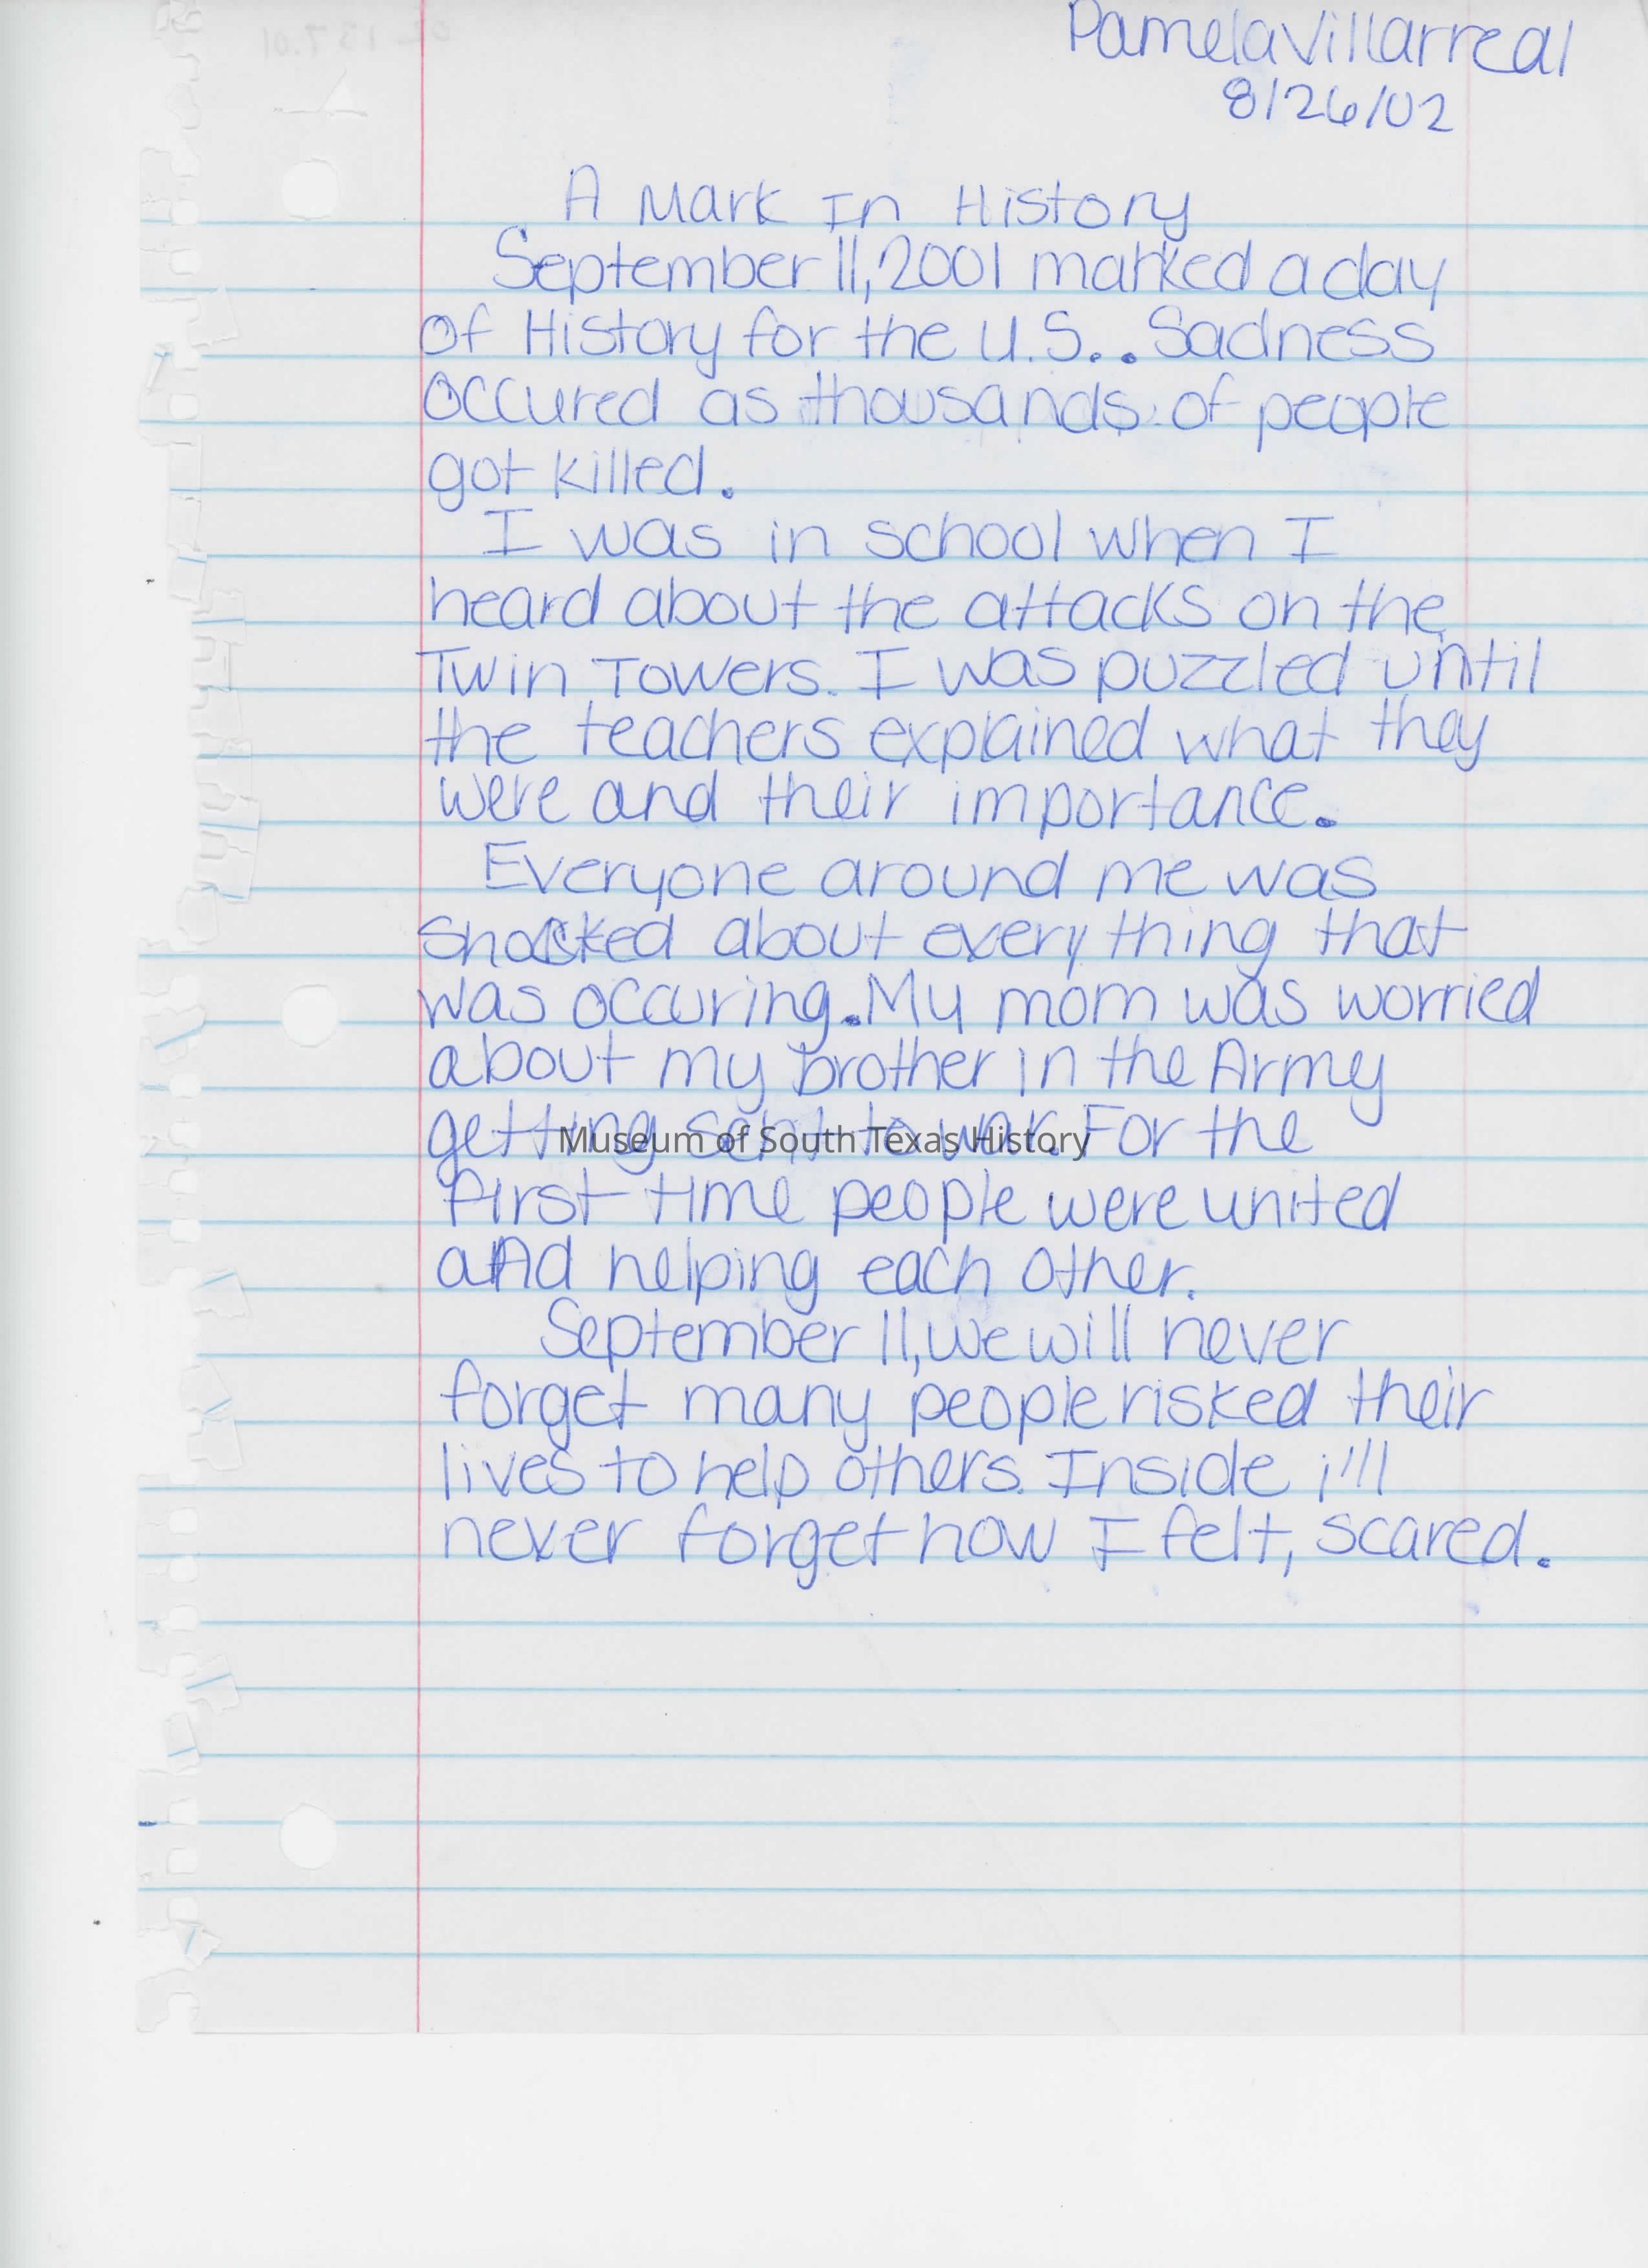 Pamela Villarreal
8/26/02
A Mark In History
September 11, 2001 marked a day
of History for the U.S.. Sadness
occured as thousands of people
got killed.
I was in school when I
heard about the attacks on the
Twin Towers. I was puzzled until
the teachers explained what they
were and their importance.
Everyone around me was
shocked about everything that
was occuring. My mom was worried
about my brother in the Army
getting sent to war. For the
Museum of South Texas History
first time people were united
and helping each other.
September 11, we will never
forget many people risked their
lives to help others. Inside i'll
never forget how I felt, scared.